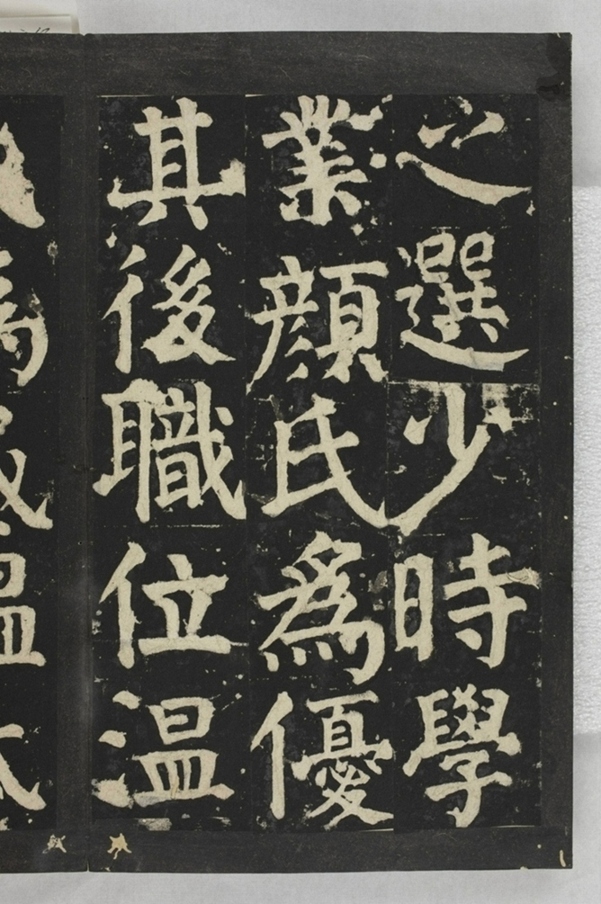 之選少時學
業顔氏為優
其後職位溫